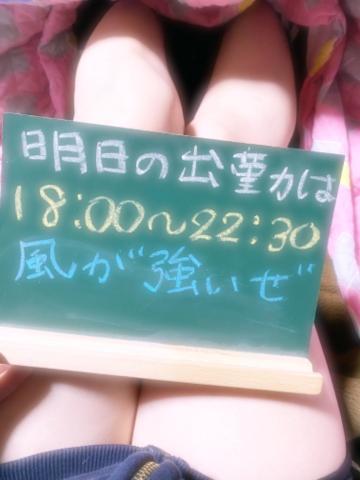 明日の出勤は
18:00〜22:30
風が強いぜ